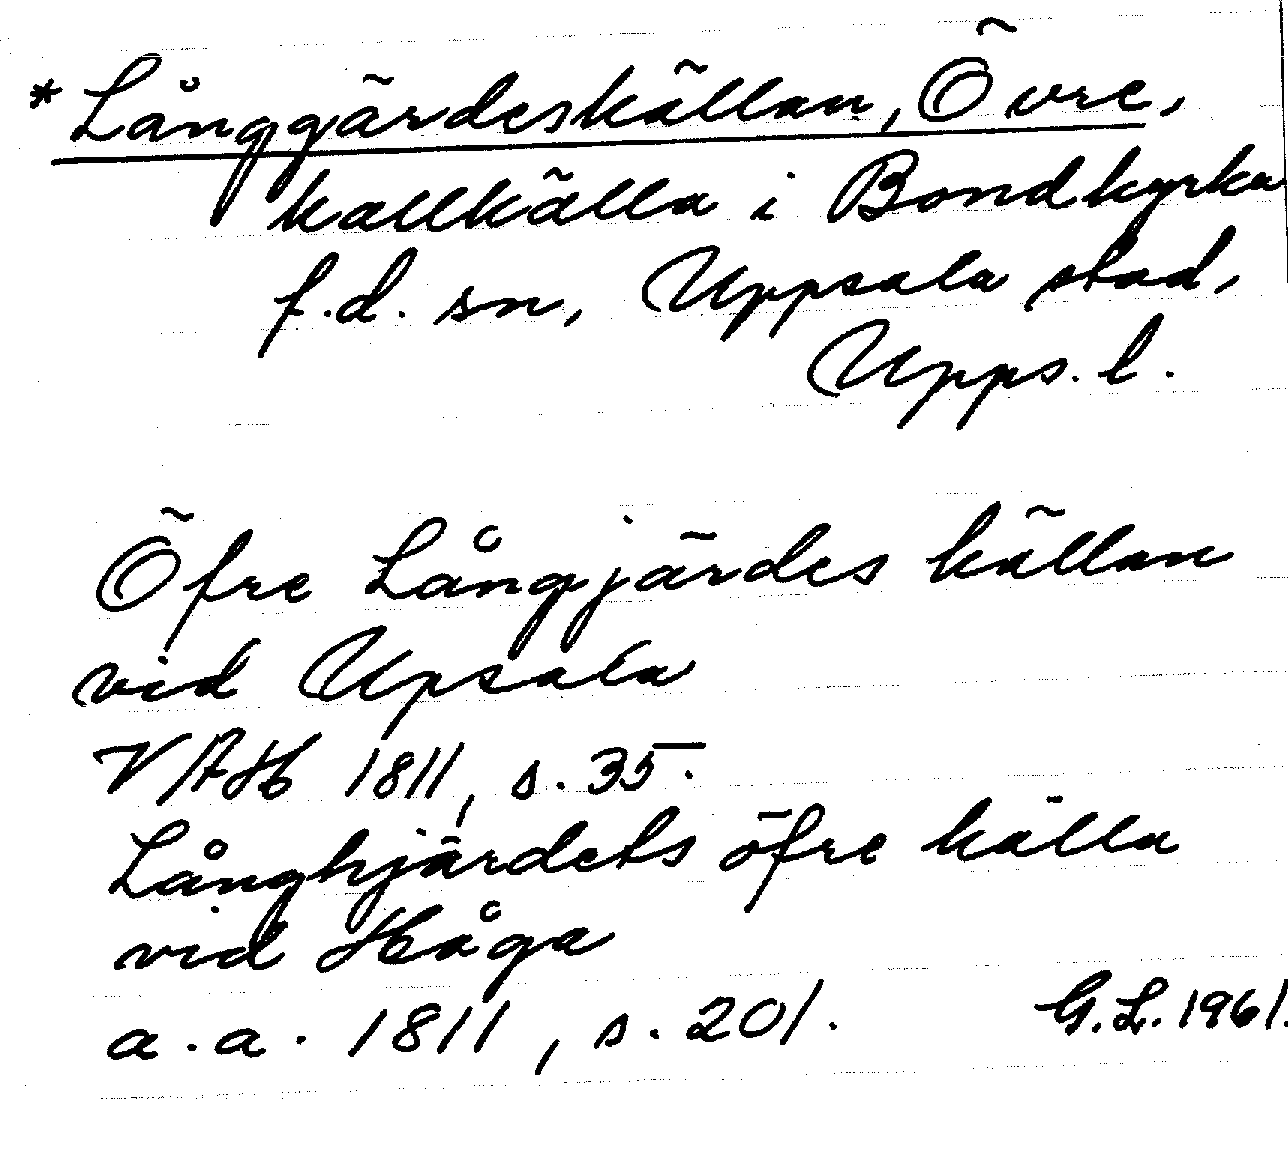 * Långgärdeskällan, Övre,
kallkälla i Bondkyrka
f.d. sn, Uppsala stad,
Upps. l.
Öfre Långjärdes källan
vid Upsala
VAH 1811, s. 35.
Långhjärdets öfre källa
vid Håga
a.a. 1811, s. 201.
G.L. 1961.